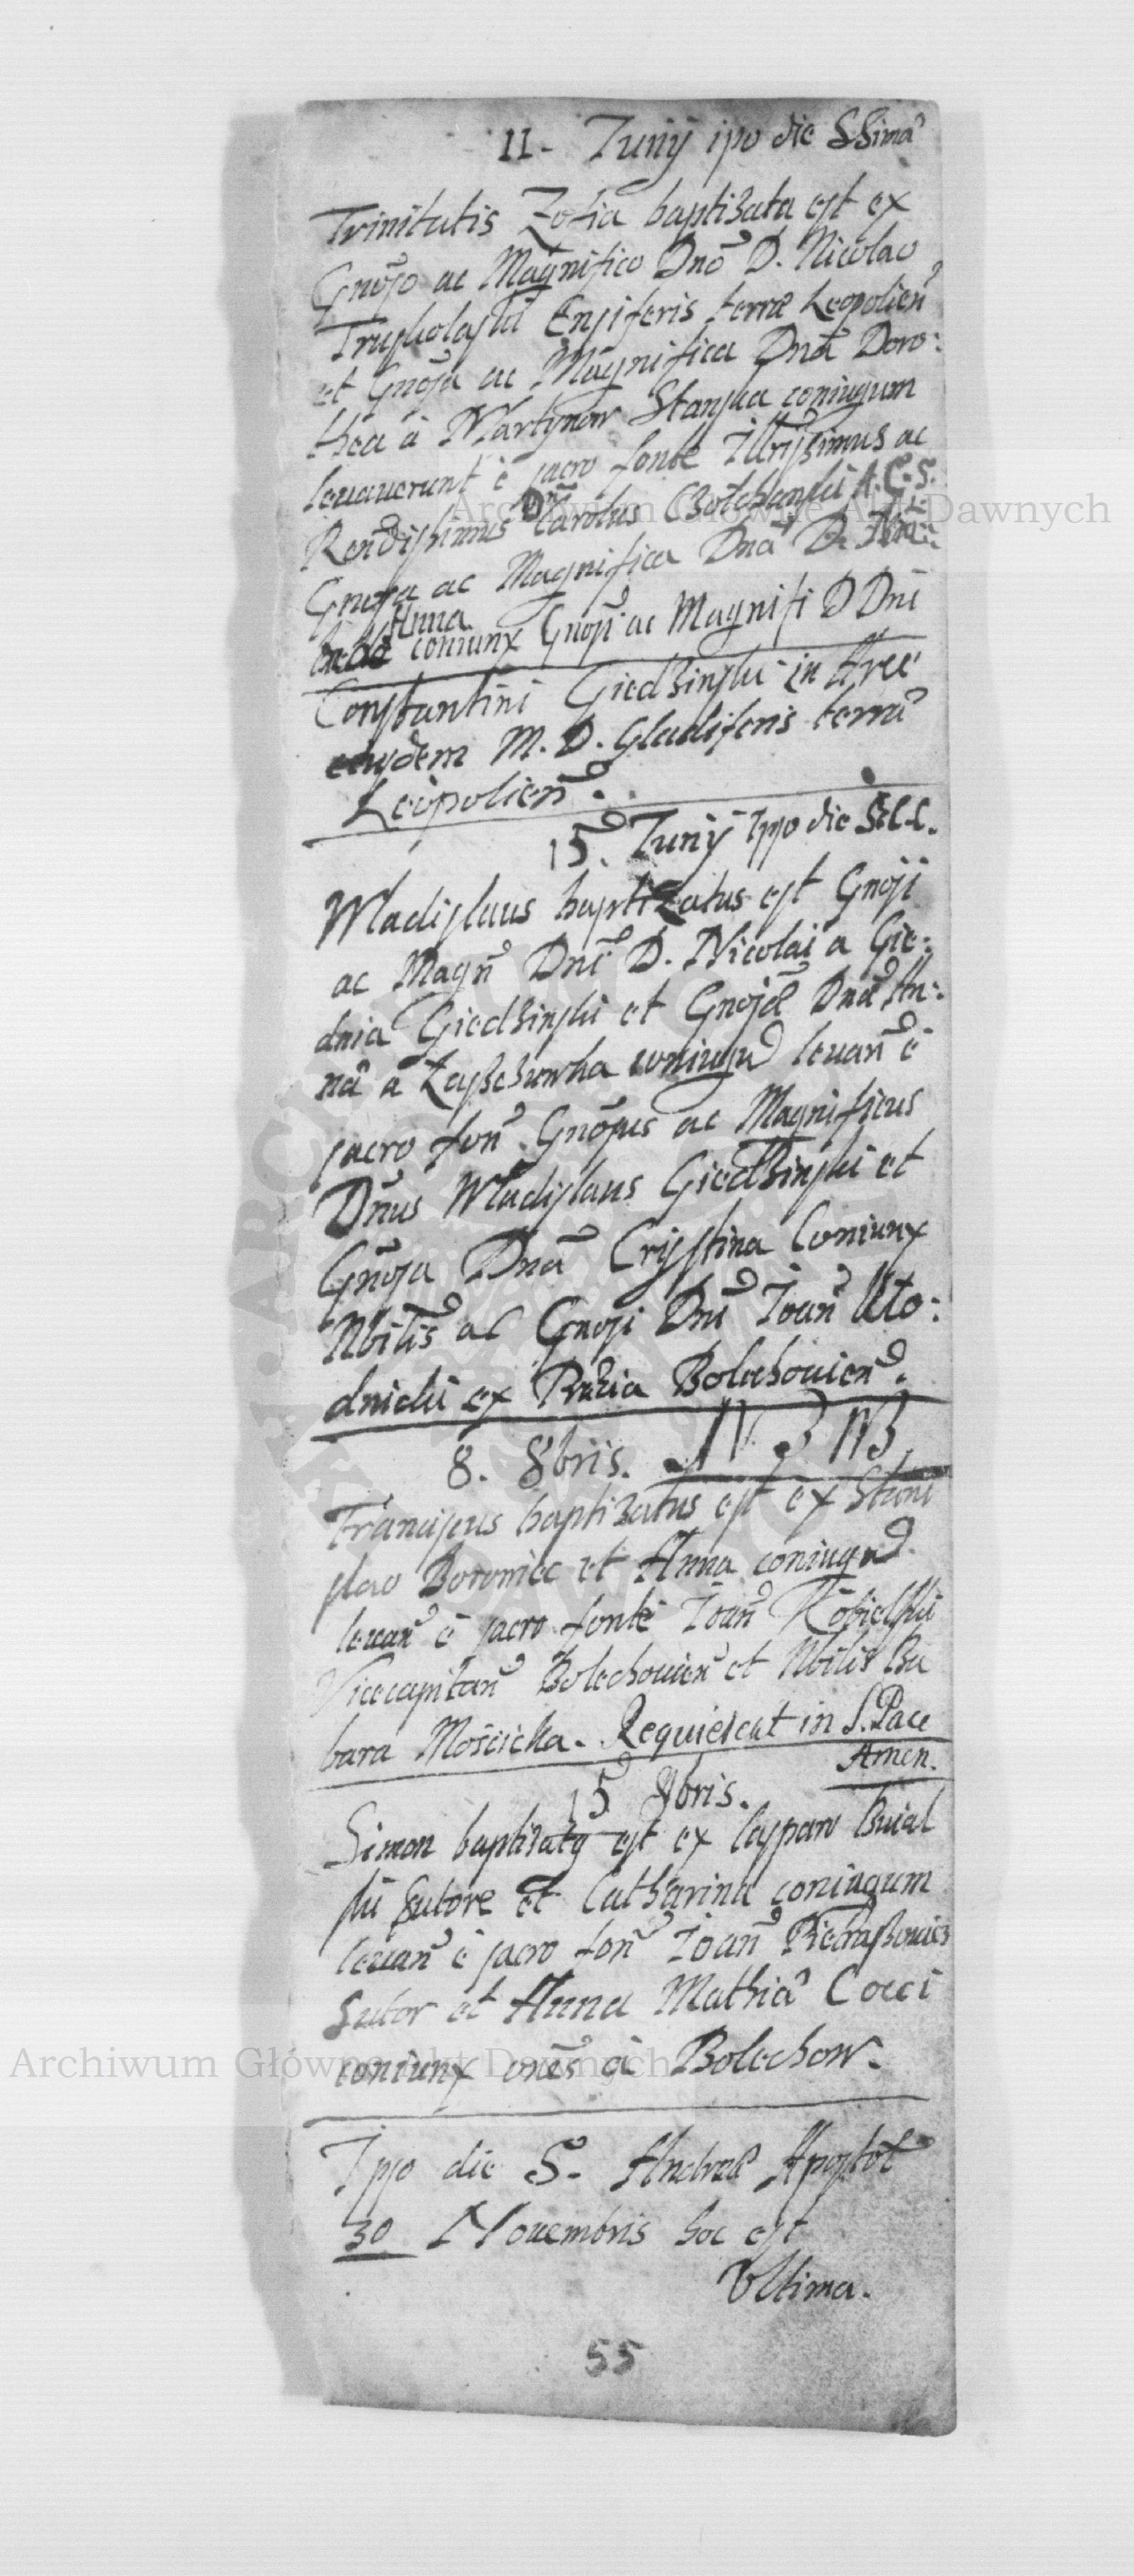 11. Iunÿ ipo die SSimã
Trinitatis Zofia baptizata est ex
Gnõso ac Magnifico Dnõ D. Nicolao
Ensiferis terræ Leopolien̄
et Gnõsa ac Magnifica Dnã Doro:
thea à Martynow Stanska coniugum
leuauerunt è sacro fonte Illrissimus ac
Rendissimus Dn̄ Carolus A. C. S.
Gnosa ac Magnifica Dnã D.
Anna
coniunx Gnosi ac Magnifi D Dni
Constantini Giedzinski in Arce
eiusdem M. D. Gladiferis terræ
Leopolien̄.
15. Iunÿ Ipso die
Wladislaus baptizatus est Gnosi
ac Magn̄ Dnī D. Nicolai a Gie:
dnia Giedzinski et Gnosæ Dnæ An:
na a coniugū leuan̄ è
sacro fon̄. Gnōsus ac Magnificus
Dn̄us Wladislaus Giedzinski et
Gnōsa Dnā Cristina Coniunx
Nbilis ac Gnosi Dni Ioan̄ Uto:
dnicki ex Bolechouien̄.
8. 8bris.
Franciscus baptizatus est ex Stani
slao Boromiec et Anna coniugū.
leuan̄ è sacro fonte Ioan̄ Kobielski
Vicecapitan̄ Bolechouien̄ et Nbilis Ba
bara Mościcka. Requiescat in S. Pace
Amen.
15 8bris.
Simon baptizatq est ex Casparo Bial
ski Sutore et Catharina coniugum
leuan̄ è sacro fon̄ Ioan̄ Pietraszouicz
Sutor et Anna Mathiæ Cocci
coniunx om̄es à Bolechow.
Ipso die S. Andreæ Apostol̄
30 Nouembris hoc est
Vltima.
55
Archiwum Główne Akt Dawnych
Archiwum Główne Akt Dawnych